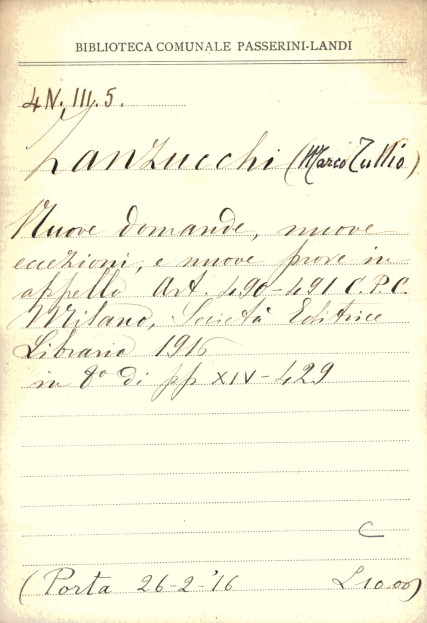 BIBLIOTECA COMUNALE PASSERINI-LANDI
4N. III. 5.
Zanzucchi (Marco Tullio)
Nuove domande, nuove
eccezioni, e nuove prove in
appello Art. 490-491 C.P.C.
Milano, Società Editrice
Libraria 1916
in 8º di pp XIV-429
C
(Porta 26-2-'16 L 10.00)